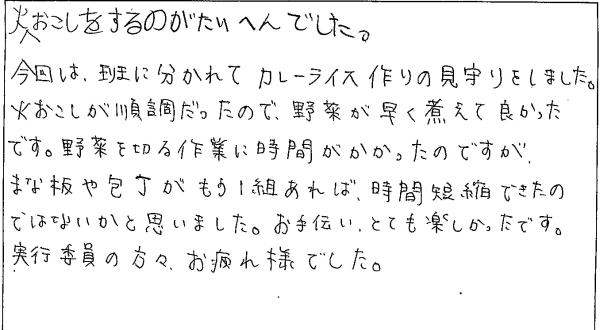 火おこしをするのがたいへんでした。
今回は、班に分かれてカレーライス作りの見守りをしました。
火おこしが順調だったので、野菜が早く煮えて良かった
です。野菜を切る作業に時間がかかったのですが、
まな板や包丁がもう1組あれば、時間短縮できたの
ではないかと思いました。お手伝い、とても楽しかったです。
実行委員の方々、お疲れ様でした。